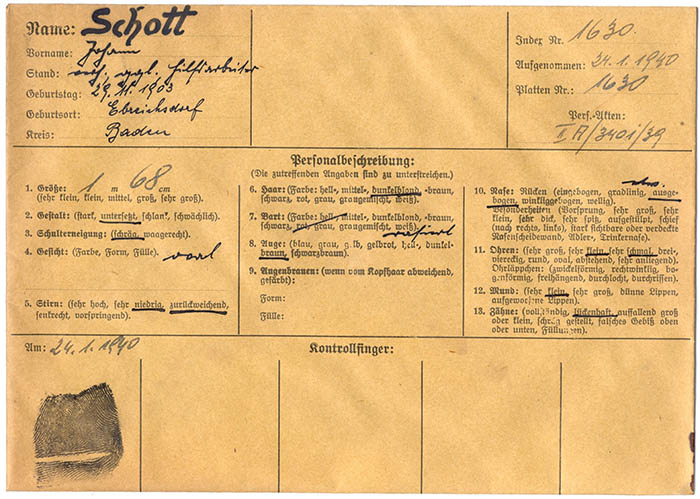 Name: Schott
Vorname: Johann
Stand: verh. ggl. Hilfsarbeiter
Geburtstag: 29. 11. 1903
Geburtsort: Ebreichsdorf
Kreis: Baden
Index Nr. 1630.
Aufgenommen: 24. 1. 1940
Platten Nr. 1630
Pers.-Akten:
II A/3401/39
Personalbeschreibung:
(Die zutreffenden Angaben sind zu unterstreichen.)
1. Größe: 1 m 68 cm
(sehr klein, klein, mittel, groß, sehr groß).
2. Gestalt: (stark, untersetzt, schlank, schwächlich).
3. Schulterneigung: (schräg, waagerecht).
4. Gesicht: (Farbe, Form, Fülle). oval
5. Stirn: (sehr hoch, sehr niedrig, zurückweichend,
senkrecht, vorspringend).
6. Haar: (Farbe: hell-, mittel-, dunkelblond, -braun,
schwarz, rot, grau, graugemischt, weiß).
7. Bart: (Farbe: hell-, mittel-, dunkelblond, -braun,
schwarz, rot, grau, graugemischt, weiß). rasiert
8. Auge: (blau, grau, gelb, gelbrot, hell-, dunkel-
braun, schwarzbraun).
9. Augenbrauen: (wenn vom Kopfhaar abweichend,
gefärbt):
Form:
Fülle:
etw.
10. Nase: Rücken (eingebogen, gradlinig, ausge-
bogen, winkliggebogen, wellig).
Besonderheiten (Vorsprung, sehr groß, sehr
klein, sehr dick, sehr spitz, aufgestülpt, schief
(nach rechts, links), stark sichtbare oder verdeckte
Nasenscheidewand, Adler-, Trinkernase).
11. Ohren: (sehr groß, sehr klein, sehr schmal, drei-
viereckig, rund, oval, abstehend, sehr anliegend).
Ohrläppchen: (zwickelförmig, rechtwinklig, bo-
genförmig, freihängend, durchlocht, durchrissen).
12. Mund: (sehr klein, sehr groß, dünne Lippen,
aufgeworfene Lippen).
13. Zähne: (vollständig, lückenhaft, auffallend groß
oder klein, schräg gestellt, falsches Gebiß oben
oder unten, Füllungen).
Am: 24. 1. 1940
Kontrollfinger: